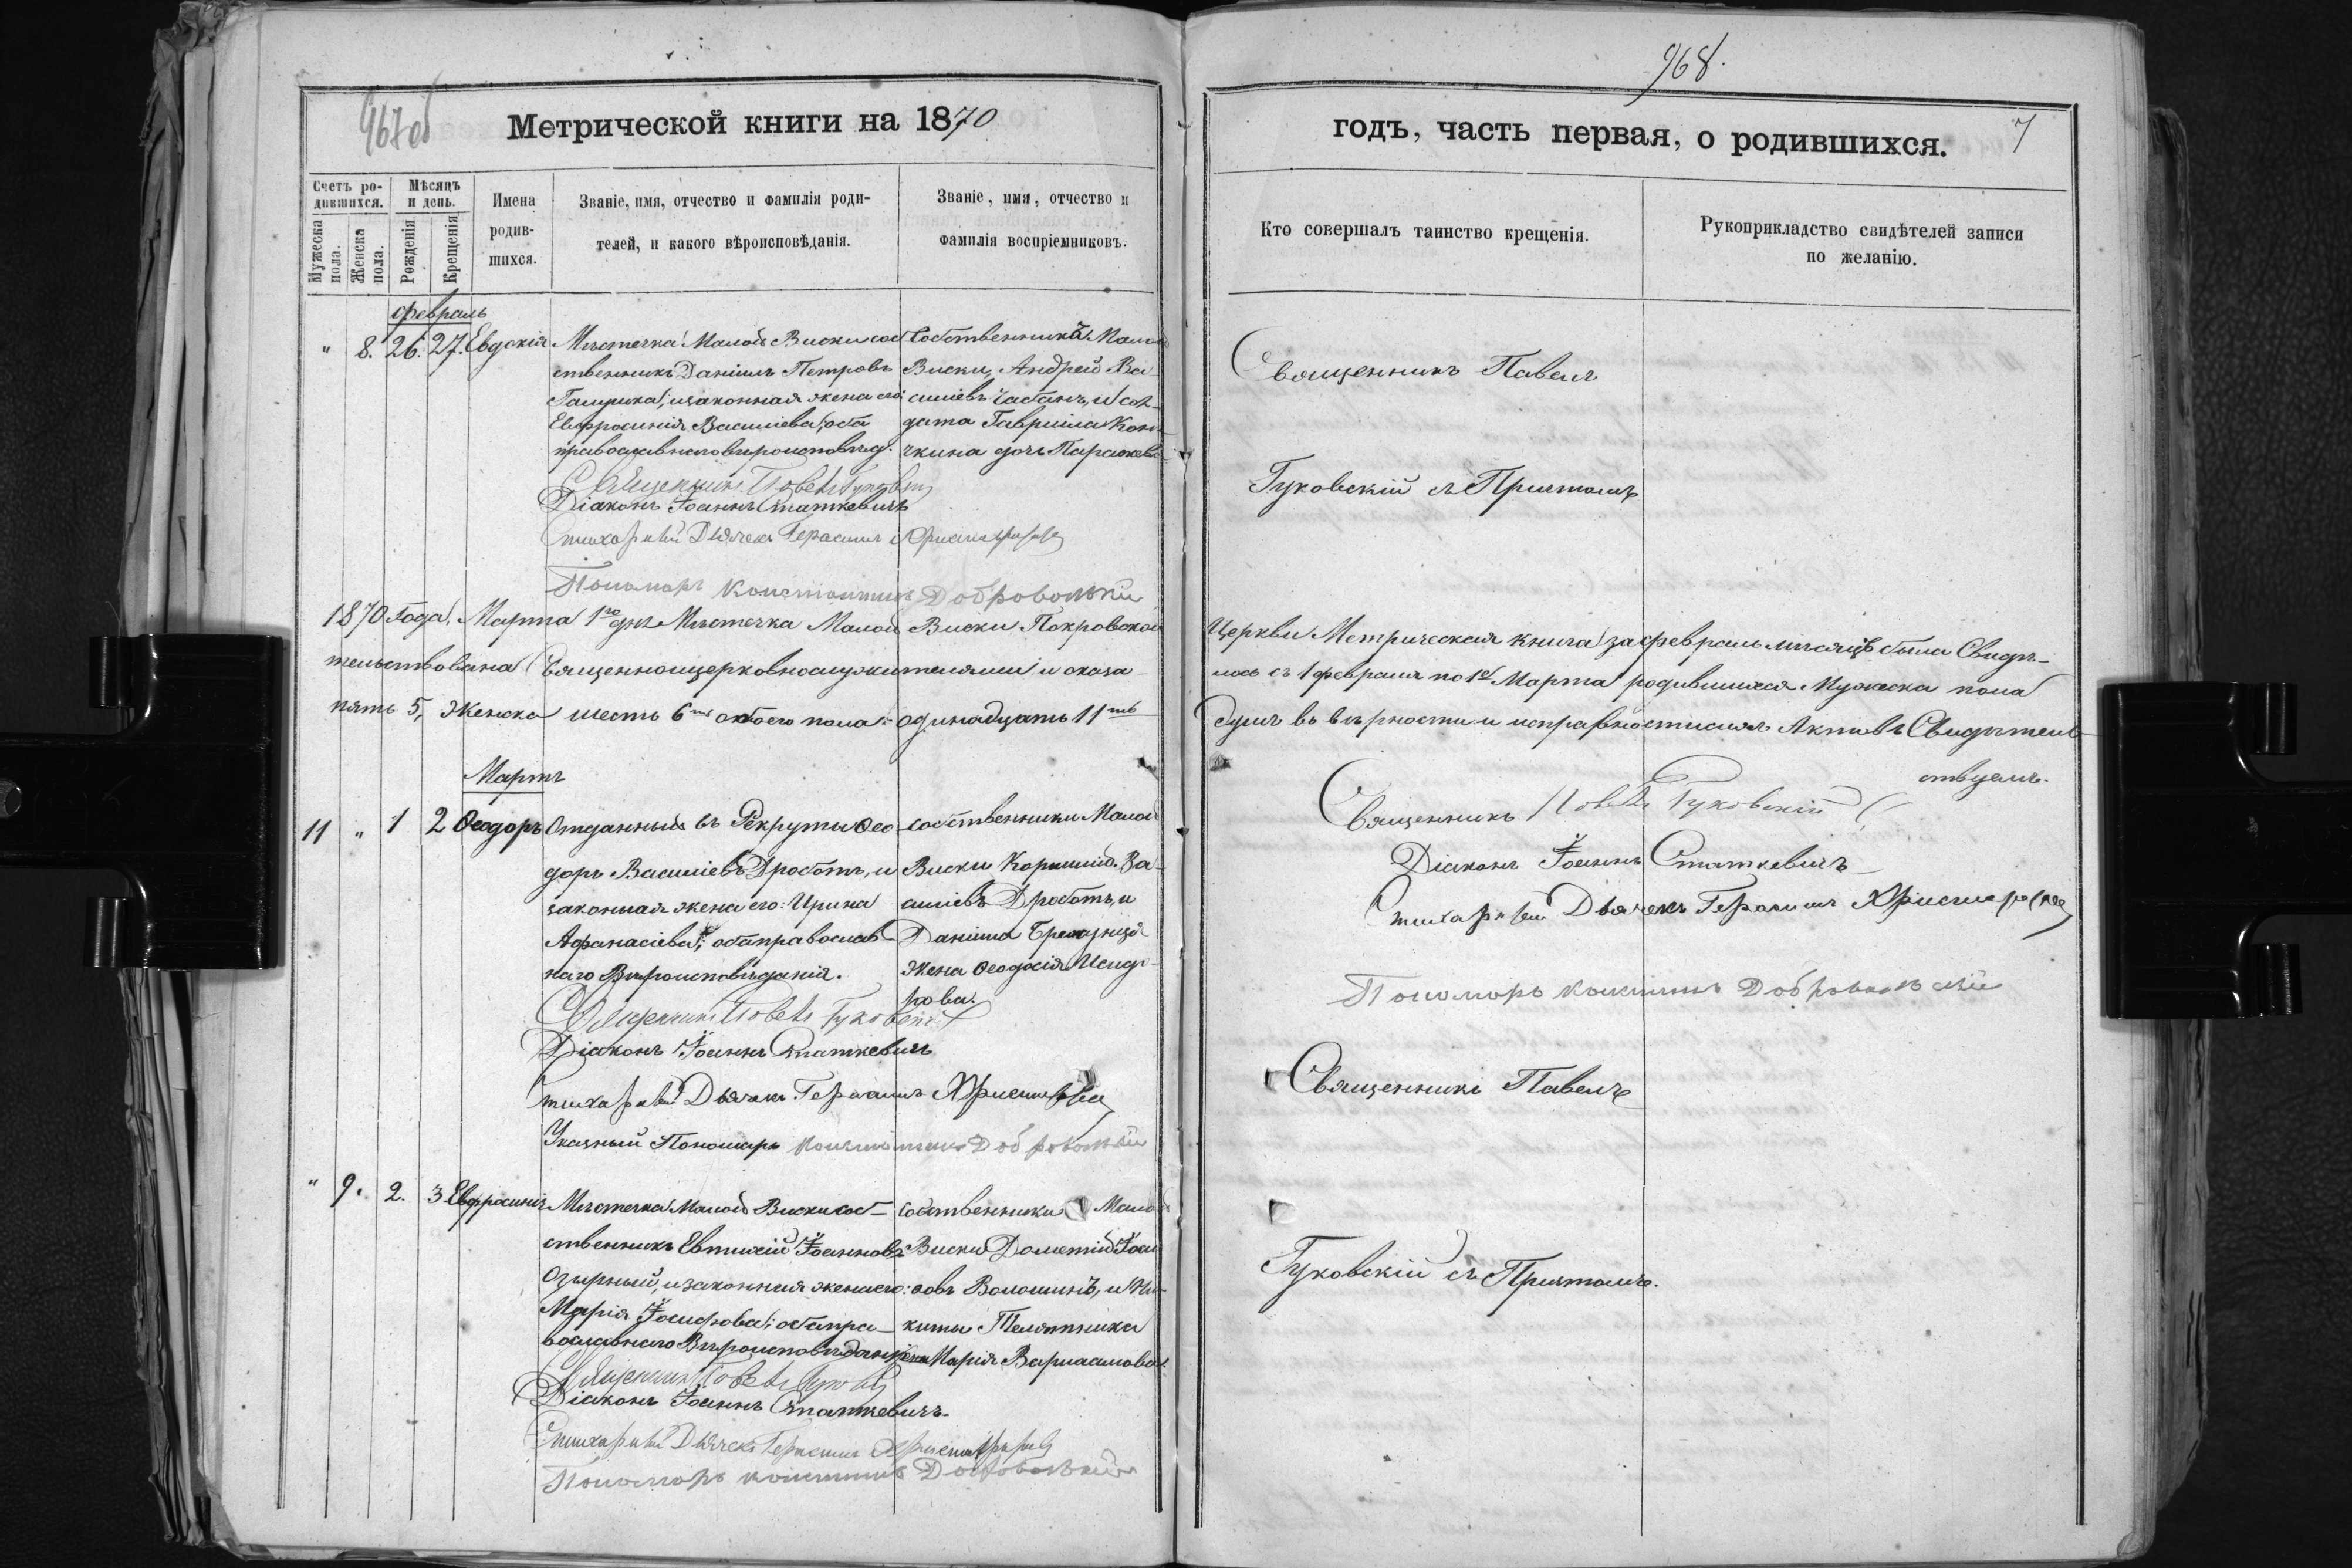 967 об
Метрической книги на 1870
Счетъ ро-
дившихся.
Мѣсяцъ
и день.
Мужеска
пола.
Женска
пола.
Рожденія
Крещенія
Имена
родив-
шихся.
Званіе, имя, отчество и фамилія роди-
телей, и какого вѣроисповѣданія.
Званіе, имя, отчество и
фамилія воспріемниковъ.
Февраль
" 8. 26. 27. Евдокія
Мѣстечка Малой Виски соб
ственникъ Даніилъ Петровъ
Галушка, и законная жена его:
Евфросинія Василіева; оба
православнаго вѣроисповѣд.
Собственникъ Малой
Виски, Андрей Ва
силіевъ Чабанъ, и сол-
дата Гавріила
дочь Параскева
Священникъ Павелъ Гуковскій
Діаконъ Іоаннъ Статкевичъ
Стихарный Дьячекъ Герасимъ
Пономарь Константинъ Добровольскій
1870 Года, Марта 1го дня Мѣстечка Малой Виски Покровской
тельствована Священноцерковнослужителями и оказа
пять 5, Женска шесть 6ть обоего пола: одинадцать 11ть
Мартъ
11 " 1 2 Ѳеодоръ
Отданный въ Рекруты Ѳео
доръ Василіевъ Дроботъ, и
законная жена его: Ирина
Афанасіева; оба православ
наго Вѣроисповѣданія.
собственники Малой
Виски Корнилій Ва
силіевъ Дроботъ, и
Даніила
жена Ѳеодосія Исидо
рова.
Священникъ Павелъ Гуковскій
Діаконъ Іоаннъ Статкевичъ
Стихарный Дьячекъ Герасимъ
Указный Пономарь Константинъ Добровольскій
" 9. 2. 3 Евфросинія
Мѣстечка Малой Виски соб-
ственникъ Евтихій Іоанновъ
Озирный, и законная жена его:
Марія Іосифова; оба пра-
вославнаго Вѣроисповѣданія
собственники Малой
Виски Дометій Іоан
новъ Волошинъ, и Ни-
киты Телятника
жена Марія Варлаамова.
Священникъ Павелъ Гуковскій
Діаконъ Іоаннъ Статкевичъ.
Стихарный Дьячекъ Герасимъ
Пономарь Константинъ Добровольскій
968.
годъ, часть первая, о родившихся. 7
Кто совершалъ таинство крещенія.
Рукоприкладство свидѣтелей записи
по желанію.
Священникъ Павелъ
Гуковскій съ Причтомъ
Церкви Метрическая книга за февраль мѣсяцъ была Свидѣ-
лось съ 1 февраля по 1е Марта родившихся Мужеска пола
душъ въ вѣрности и исправности сихъ Актовъ Свидѣтель-
ствуемъ.
Священникъ Павелъ Гуковскій
Діаконъ Іоаннъ Статкевичъ
Стихарный Дьячекъ Герасимъ
Пономарь Константинъ Добровольскій
Священникъ Павелъ
Гуковскій съ Причтомъ.